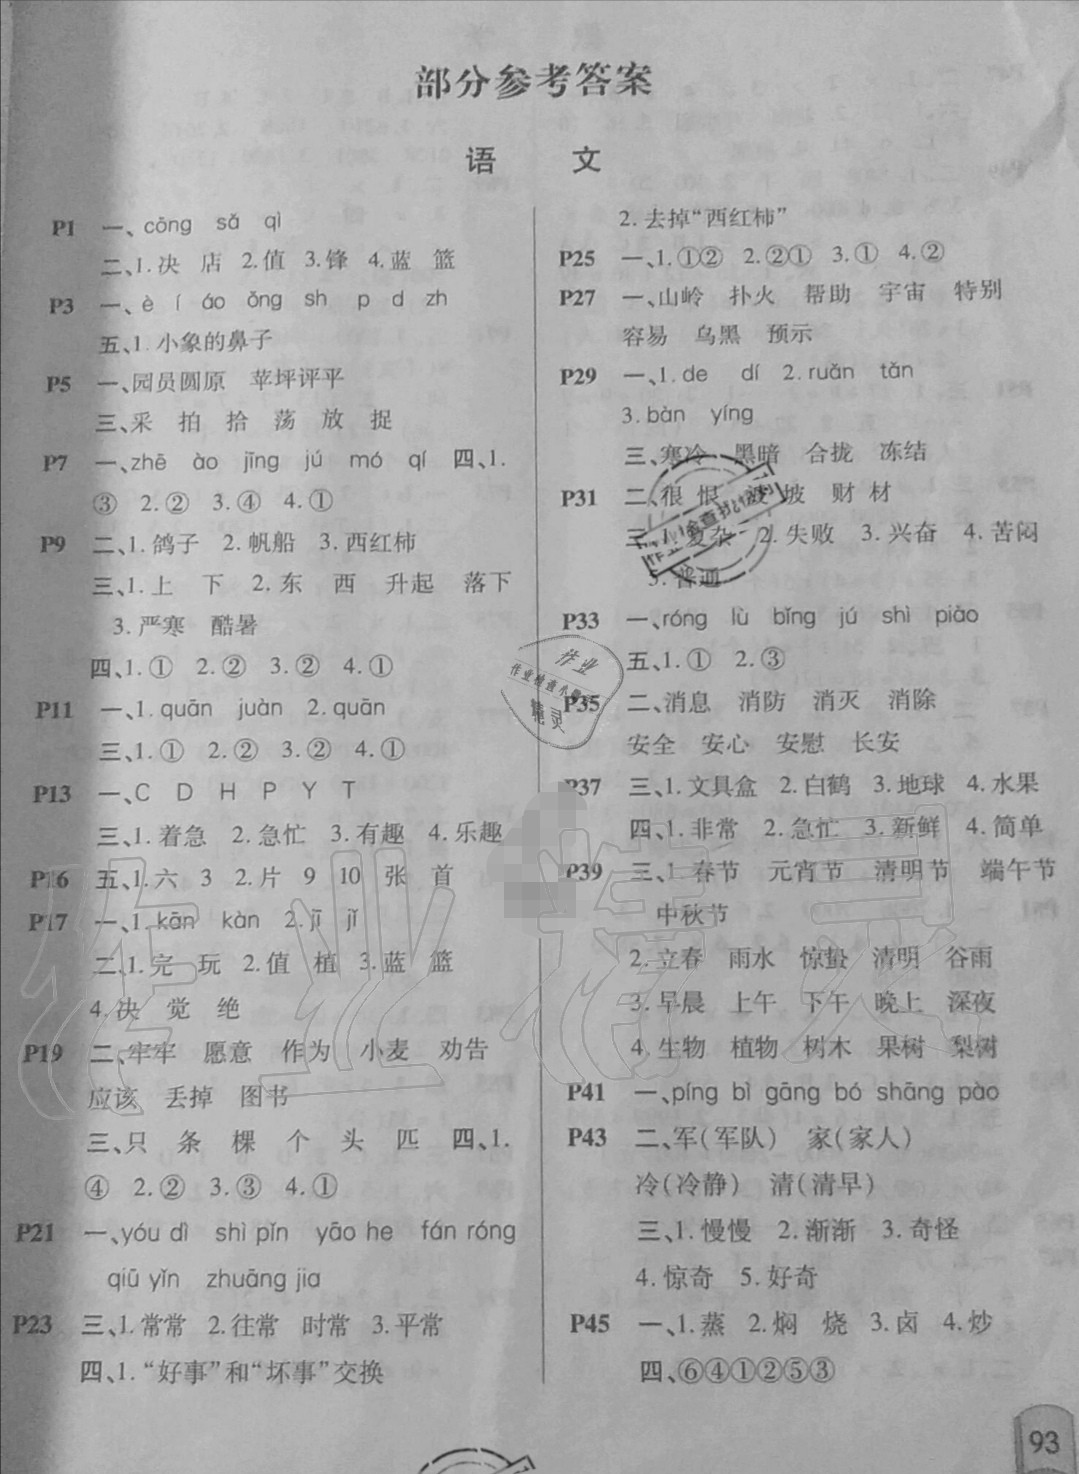 部分参考答案
语 文
P1 一、cōng sǎ qì
二、1.决 店 2.值 3.锋 4.蓝 篮
P3 一、è í áo ǒng sh p d zh
五、1.小象的鼻子
P5 一、园员圆原 苹坪评平
三、采 拍 拾 荡 放 捉
P7 一、zhē ào jīng jú mó qí 四、1.
③ 2.② 3.④ 4.①
P9 二、1.鸽子 2.帆船 3.西红柿
三、1.上 下 2.东 西 升起 落下
3.严寒 酷暑
四、1.① 2.② 3.② 4.①
P11 一、1.quān juàn 2.quān
三、1.① 2.② 3.② 4.①
P13 一、C D H P Y T
三、1.着急 2.急忙 3.有趣 4.乐趣
P16 五、1.六 3 2.片 9 10 张 首
P17 一、1.kān kàn 2.jī jǐ
二、1.完 玩 2.值 植 3.蓝 篮
4.决 觉 绝
P19 二、牢牢 愿意 作为 小麦 劝告
应该 丢掉 图书
三、只 条 棵 个 头 匹 四、1.
④ 2.② 3.③ 4.①
P21 一、yóu dì shì pǐn yāo he fán róng
qiū yǐn zhuāng jia
P23 三、1.常常 2.往常 时常 3.平常
四、1.“好事”和“坏事”交换
2.去掉“西红柿”
P25 一、1.①② 2.②① 3.① 4.②
P27 一、山岭 扑火 帮助 宇宙 特别
容易 乌黑 预示
P29 一、1.de dí 2.ruǎn tǎn
3.bàn yíng
三、寒冷 黑暗 合拢 冻结
P31 二、很 恨 波 坡 财 材
三、1.复杂 2.失败 3.兴奋 4.苦闷
5.普通
P33 一、róng lù bǐng jú shì piào
五、1.① 2.③
P35 二、消息 消防 消灭 消除
安全 安心 安慰 长安
P37 三、1.文具盒 2.白鹤 3.地球 4.水果
四、1.非常 2.急忙 3.新鲜 4.简单
P39 三、1.春节 元宵节 清明节 端午节
中秋节
2.立春 雨水 惊蛰 清明 谷雨
3.早晨 上午 下午 晚上 深夜
4.生物 植物 树木 果树 梨树
P41 一、píng bì gāng bó shāng pào
P43 二、军(军队) 家(家人)
冷(冷静) 清(清早)
三、1.慢慢 2.渐渐 3.奇怪
4.惊奇 5.好奇
P45 一、1.蒸 2.焖 烧 3.卤 4.炒
四、⑥④①②⑤③
93